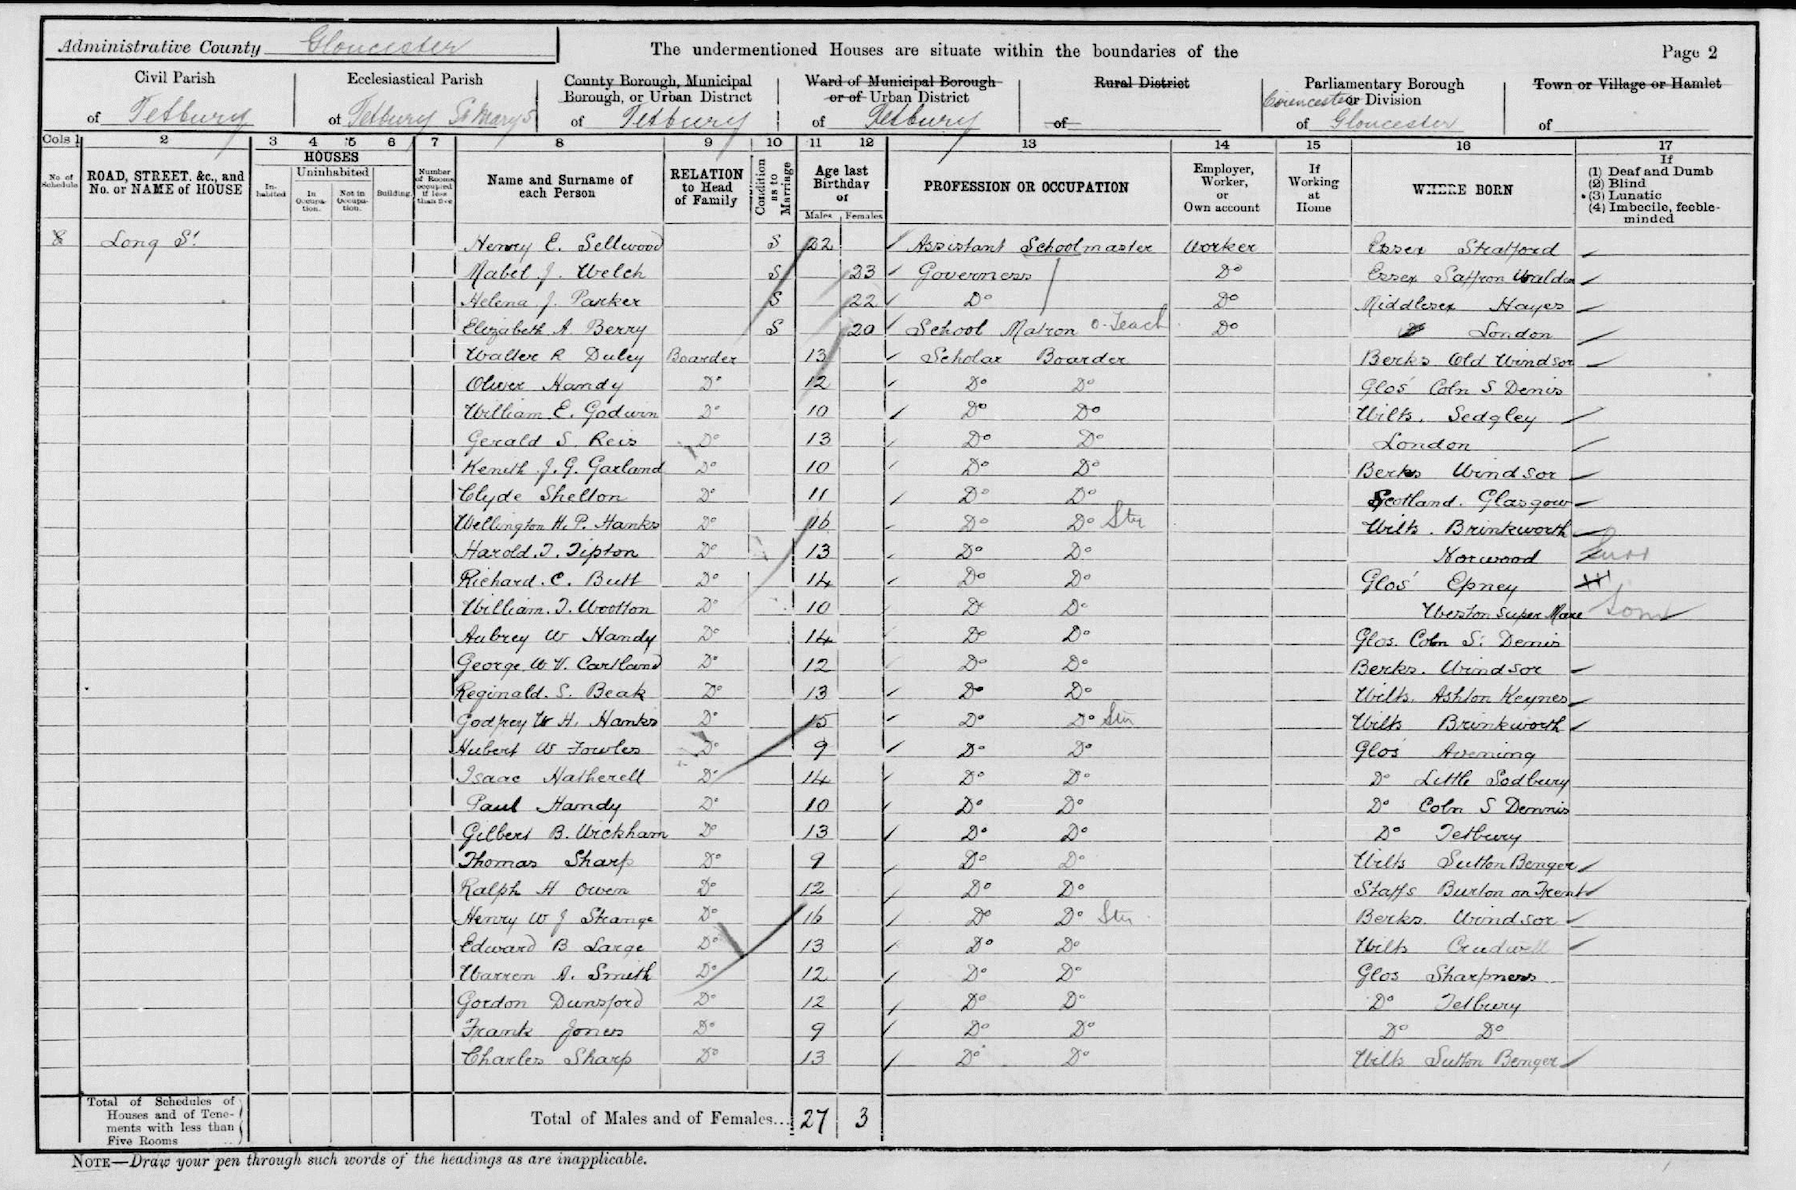 Administrative County Gloucester
The undermentioned Houses are situate within the boundaries of the
Page 2
Civil Parish of Tetbury
Ecclesiastical Parish of Tetbury St Marys
County Borough, Municipal Borough, or Urban District of Tetbury
Ward of Municipal Borough or of Urban District of Tetbury
Rural District of
Parliamentary Borough or Division of Cirencester Gloucester
Town or Village or Hamlet of
Cols 1 2 3 4 5 6 7 8 9 10 11 12 13 14 15 16 17
No. of Schedule
ROAD, STREET, &c., and No. or NAME of HOUSE
HOUSES
In-habited
Uninhabited
In Occupa-tion.
Not in Occupa-tion.
Building
Number of Rooms occupied if less than five
Name and Surname of each Person
RELATION to Head of Family
Condition as to Marriage
Age last Birthday of
Males Females
PROFESSION OR OCCUPATION
Employer, Worker, or Own account
If Working at Home
WHERE BORN
If
(1) Deaf and Dumb
(2) Blind
(3) Lunatic
(4) Imbecile, feeble-minded
8 Long St Henry E. Sellwood S 22 Assistant Schoolmaster Worker Essex Stratford
Mabel J. Welch S 23 Governess Do Essex Saffron Walden
Helena J. Parker S 22 Do Do Middlesex Hayes
Elizabeth A Berry S 20 School Matron O-Teach Do Do London
Walter R Duley Boarder 13 Scholar Boarder Berks Old Windsor
Oliver Handy Do 12 Do Do Glos Coln S Denis
William E. Godwin Do 10 Do Do Wilts. Sedgley
Gerald S. Reis Do 13 Do Do London
Kenith J. G. Garland Do 10 Do Do Berks Windsor
Clyde Shelton Do 11 Do Do Scotland. Glasgow
Wellington H. P. Hanks Do 16 Do Do Stu Wilts. Brinkworth
Harold. T. Tipton Do 13 Do Do Norwood Surr
Richard. C. Butt Do 14 Do Do Glos Epney
William. T. Wootton Do 10 Do Do Weston Super Mare Som
Aubrey W Handy Do 14 Do Do Glos. Coln St. Denis
George. W. V. Cartland Do 12 Do Do Berks. Windsor
Reginald. S. Beak Do 13 Do Do Wilts. Ashton Keynes
Godfrey W H. Hanks Do 15 Do Do Stu Wilts Brinkworth
Hubert W Fowles Do 9 Do Do Glos Avening
Isaac Hatherell Do 14 Do Do Do Little Sodbury
Paul Handy Do 10 Do Do Do Coln S Dennis
Gilbert B. Wickham Do 13 Do Do Do Tetbury
Thomas Sharp Do 9 Do Do Wilts Sutton Benger
Ralph H Owen Do 12 Do Do Staffs Burton on Trent
Henry W J Strange Do 16 Do Do Stu Berks. Windsor
Edward B Large Do 13 Do Do Wilts Crudwell
Warren A. Smith Do 12 Do Do Glos Sharpness
Gordon Dunsford Do 12 Do Do Do Tetbury
Frank Jones Do 9 Do Do Do Do
Charles Sharp Do 13 Do Do Wilts Sutton Benger
Total of Schedules of Houses and of Tene-ments with less than Five Rooms
Total of Males and of Females... 27 3
NOTE—Draw your pen through such words of the headings as are inapplicable.